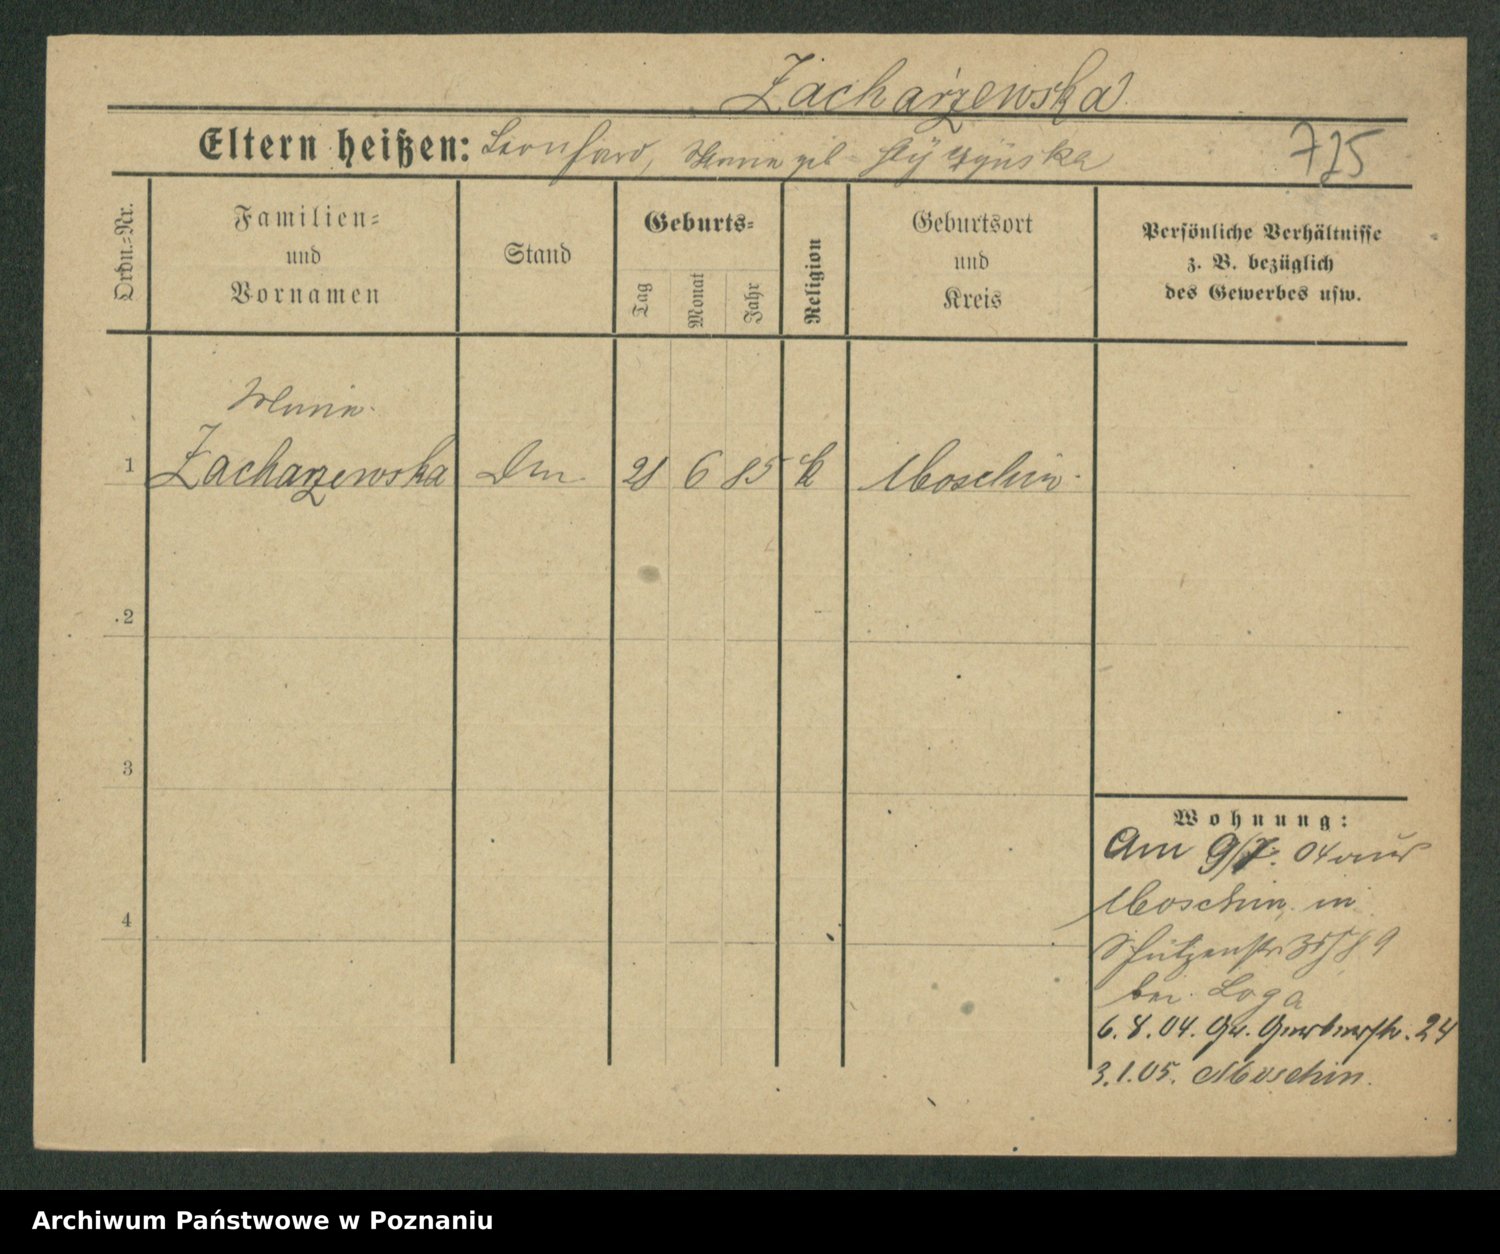 Zacharzewska
Eltern heißen: Leonhard, geb
725
Ordn.=Nr.
Familien=
und
Vornamen
Stand
Geburts=
Tag
Monat
Jahr
Religion
Geburtsort
und
Kreis
Persönliche Verhältnisse
z. B. bezüglich
des Gewerbes usw.
Maria
1 Zacharzewska 6 85 k Moschin
2
3
4
Wohnung:
Am 9/7. 04 aus
Moschin in
Schützenstr
bei Loga
6. 8. 04. Gr. Gerberstr. 24
3. 1. 05. Moschin.
Archiwum Państwowe w Poznaniu